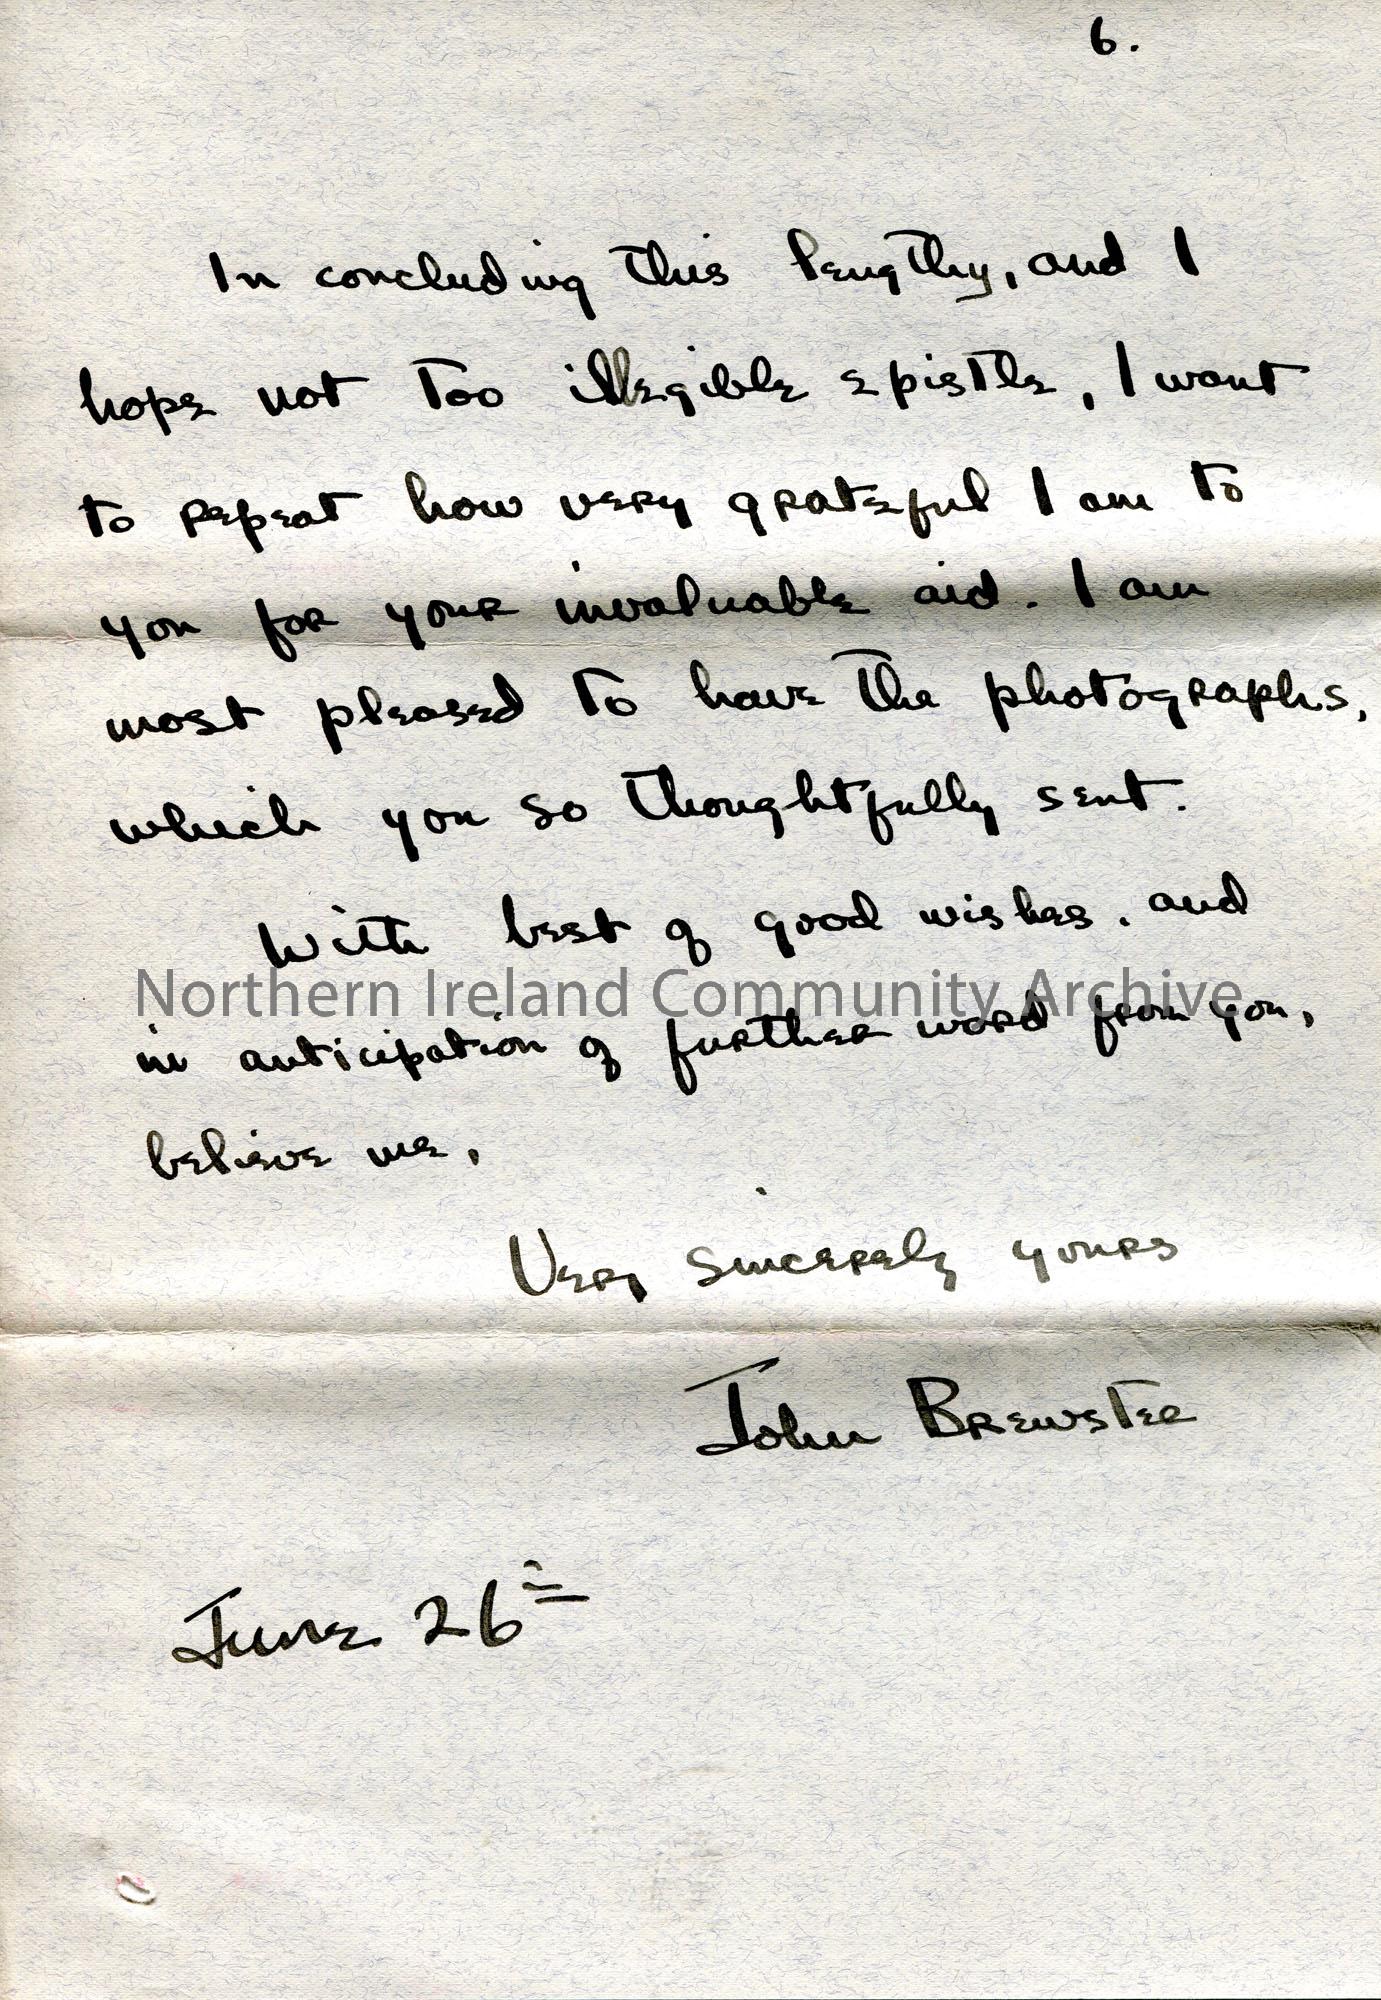 6.
In concluding this lengthy, and I
hope not too illegible epistle, I want
to repeat how very grateful I am to
you for your invaluable aid. I am
most pleased to have the photographs,
which you so thoughtfully sent.
With best of good wishes, and
Northern Ireland Community Archive
in anticipation of further word from you,
believe me,
Very sincerely yours
John Brewster
June 26th